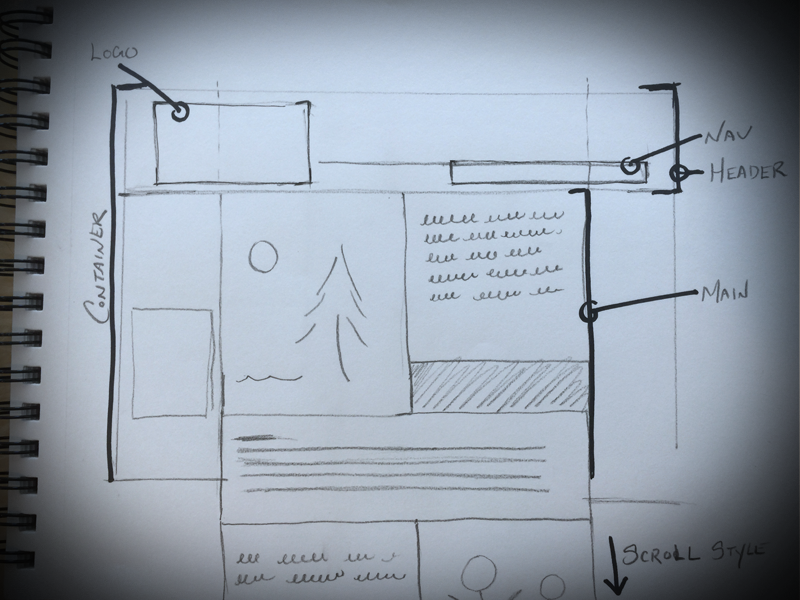 LOGO
NAV
HEADER
CONTAINER
MAIN
SCROLL STYLE